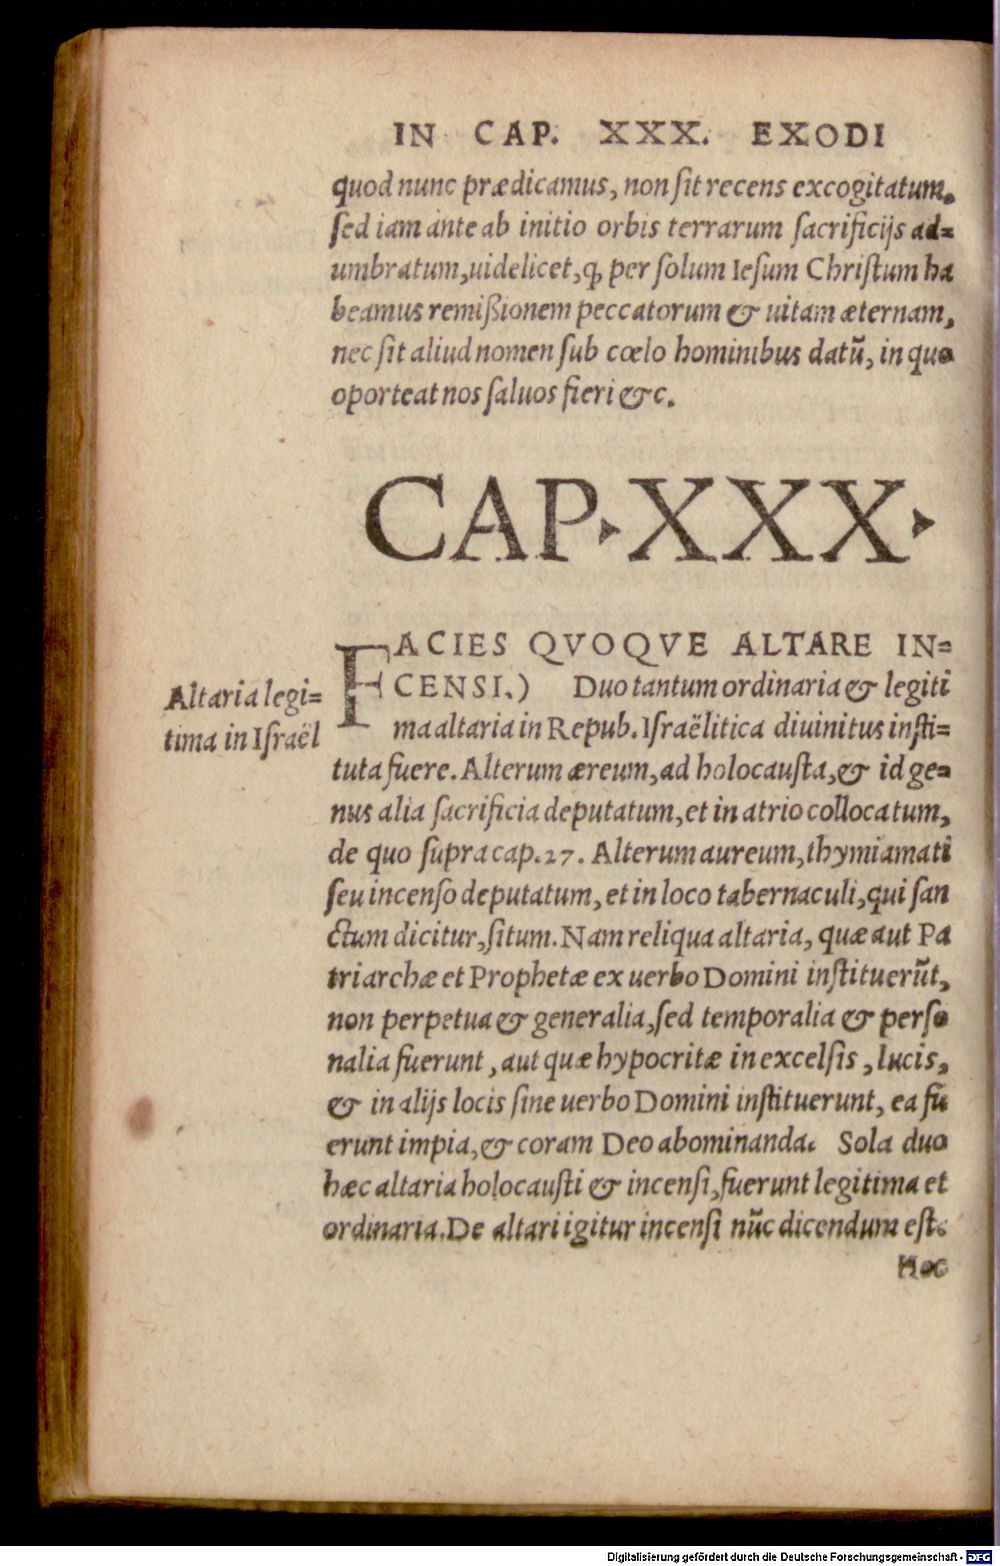 IN CAP. XXX. EXODI
quod nunc prædicamus, non ſit recens excogitatum.
ſed iam ante ab initio orbis terrarum ſacrificijs ad=
umbratum, uidelicet, ꝙ per ſolum Ieſum Chriſtum ha
beamus remißionem peccatorum & uitam æternam,
nec ſit aliud nomen ſub cœlo hominibus datũ, in quo
oporteat nos ſaluos fieri &c.
CAP. XXX.
FACIES QVOQVE ALTARE IN=
CENSI.) Duo tantum ordinaria & legiti
Altaria legi=
tima in Iſraël
ma altaria in Repub. Iſraëlitica diuinitus inſti=
tuta fuere. Alterum æreum, ad holocauſta, & id ge=
nus alia ſacrificia deputatum, et in atrio collocatum,
de quo ſupra cap. 27. Alterum aureum, thymiamati
ſeu incenſo deputatum, et in loco tabernaculi, qui ſan
ctum dicitur, ſitum. Nam reliqua altaria, quæ aut Pa
triarchæ et Prophetæ ex uerbo Domini inſtituerũt,
non perpetua & generalia, ſed temporalia & perſo
nalia fuerunt, aut quæ hypocritæ in excelſis, lucis,
& in alijs locis ſine uerbo Domini inſtituerunt, ea fu
erunt impia, & coram Deo abominanda. Sola duo
hæc altaria holocauſti & incenſi, fuerunt legitima et
ordinaria. De altari igitur incenſi nũc dicendum eſt.
Hoc
Digitalisierung gefördert durch die Deutsche Forschungsgemeinschaft - DFG